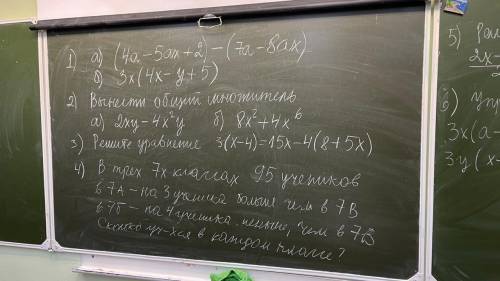 1) а) (4a – 5ax + 2) – (7a – 8ax)
б) 3x(4x – y + 5)
2) Вынести общий множитель
а) 2xy – 4x²y б) 8x² + 4x⁶
3) Решите уравнение 3(x – 4) = 15x – 4(8 + 5x)
4) В трех 7х классах 95 учеников
в 7А – на 3 ученика больше чем в 7В
в 7Б – на 4 ученика меньше, чем в 7В
Сколько уч-хся в каждом классе?
5)
2x –
3x(a –
3y(x –